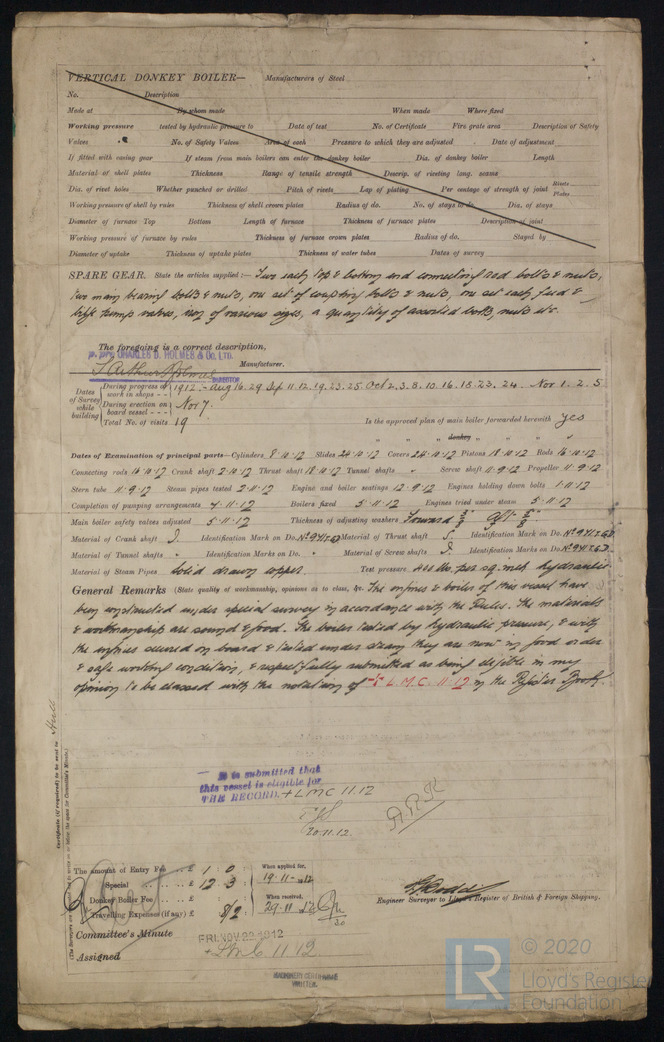 VERTICAL DONKEY BOILER— Manufacturers of Steel
No. Description
Made at By whom made When made Where fixed
Working pressure tested by hydraulic pressure to Date of test No. of Certificate Fire grate area Description of Safety
Valves No. of Safety Valves Area of each Pressure to which they are adjusted Date of adjustment
If fitted with easing gear If steam from main boilers can enter the donkey boiler Dia. of donkey boiler Length
Material of shell plates Thickness Range of tensile strength Descrip. of riveting long. seams
Dia. of rivet holes Whether punched or drilled Pitch of rivets Lap of plating Per centage of strength of joint Rivets Plates
Working pressure of shell by rules Thickness of shell crown plates Radius of do. No. of stays to do. Dia. of stays
Diameter of furnace Top Bottom Length of furnace Thickness of furnace plates Description of joint
Working pressure of furnace by rules Thickness of furnace crown plates Radius of do. Stayed by
Diameter of uptake Thickness of uptake plates Thickness of water tubes Dates of survey
SPARE GEAR. State the articles supplied:— Two each top & bottom end connecting rod bolts & nuts,
two main bearing bolts & nuts, one set of coupling bolts & nuts, one set each feed &
bilge pump valves, iron of various sizes, a quantity of assorted bolts, nuts etc.
The foregoing is a correct description,
p. pro. CHARLES D. HOLMES & Co. LTD.
Arthur Holmes Manufacturer.
DIRECTOR
Dates of Survey while building
During progress of work in shops - - 1912. Aug 16. 29. Sep 11. 12. 19. 23. 25 Oct 2. 3. 8. 10. 16. 18. 23. 24. Nov 1. 2. 5
During erection on board vessel - - - Nov 7.
Total No. of visits 19 Is the approved plan of main boiler forwarded herewith Yes
" " " donkey " " "
Dates of Examination of principal parts—Cylinders 8.10.12 Slides 24.10.12 Covers 24.10.12 Pistons 18.10.12 Rods 16.10.12
Connecting rods 16.10.12 Crank shaft 2.10.12 Thrust shaft 18.10.12 Tunnel shafts " Screw shaft 11.9.12 Propeller 11.9.12
Stern tube 11.9.12 Steam pipes tested 2.11.12 Engine and boiler seatings 12.9.12 Engines holding down bolts 1.11.12
Completion of pumping arrangements 7.11.12 Boilers fixed 5.11.12 Engines tried under steam 5.11.12
Main boiler safety valves adjusted 5.11.12 Thickness of adjusting washers Forward 3/8 Aft
Material of Crank shaft Identification Mark on Do. Material of Thrust shaft Identification Mark on Do.
Material of Tunnel shafts " Identification Marks on Do. " Material of Screw shafts Identification Marks on Do.
Material of Steam Pipes Solid drawn copper. Test pressure 400 lbs per sq. inch hydraulic
General Remarks (State quality of workmanship, opinions as to class, &c. The engines & boiler of this vessel have
been constructed under special survey in accordance with the Rules. The materials
& workmanship are sound & good. The boiler tested by hydraulic pressure, & with
the engines secured on board & tested under steam they are now in good order
& safe working condition, & respectfully submitted as being eligible in my
opinion to be classed with the notation of + L.M.C. 11.12 in the Register Book.
Certificate (if required) to be sent to Hull
It is submitted that
this vessel is eligible for
THE RECORD. + LMC 11.12
20.11.12
The amount of Entry Fee .. £ 1 . 0 When applied for,
Special .. .. £ 12 . 3 19.11.1912
Donkey Boiler Fee .. .. £ When received,
Travelling Expenses (if any) £ 8/2 29.11.12
Engineer Surveyor to Lloyd's Register of British & Foreign Shipping.
Committee's Minute FRI. NOV. 22 1912
Assigned + LMC 11 12
MACHINERY CERTIFICATE
WRITTEN.
© 2020
LR Lloyd's Register
Foundation